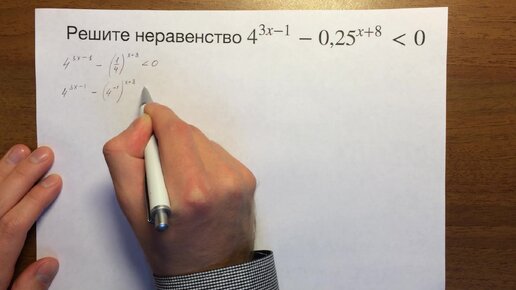 Решите неравенство 4^{3x−1} − 0,25^{x+8} < 0
4^{3x−1} − (1/4)^{x+8} < 0
4^{3x−1} − (4^{−1})^{x+8}